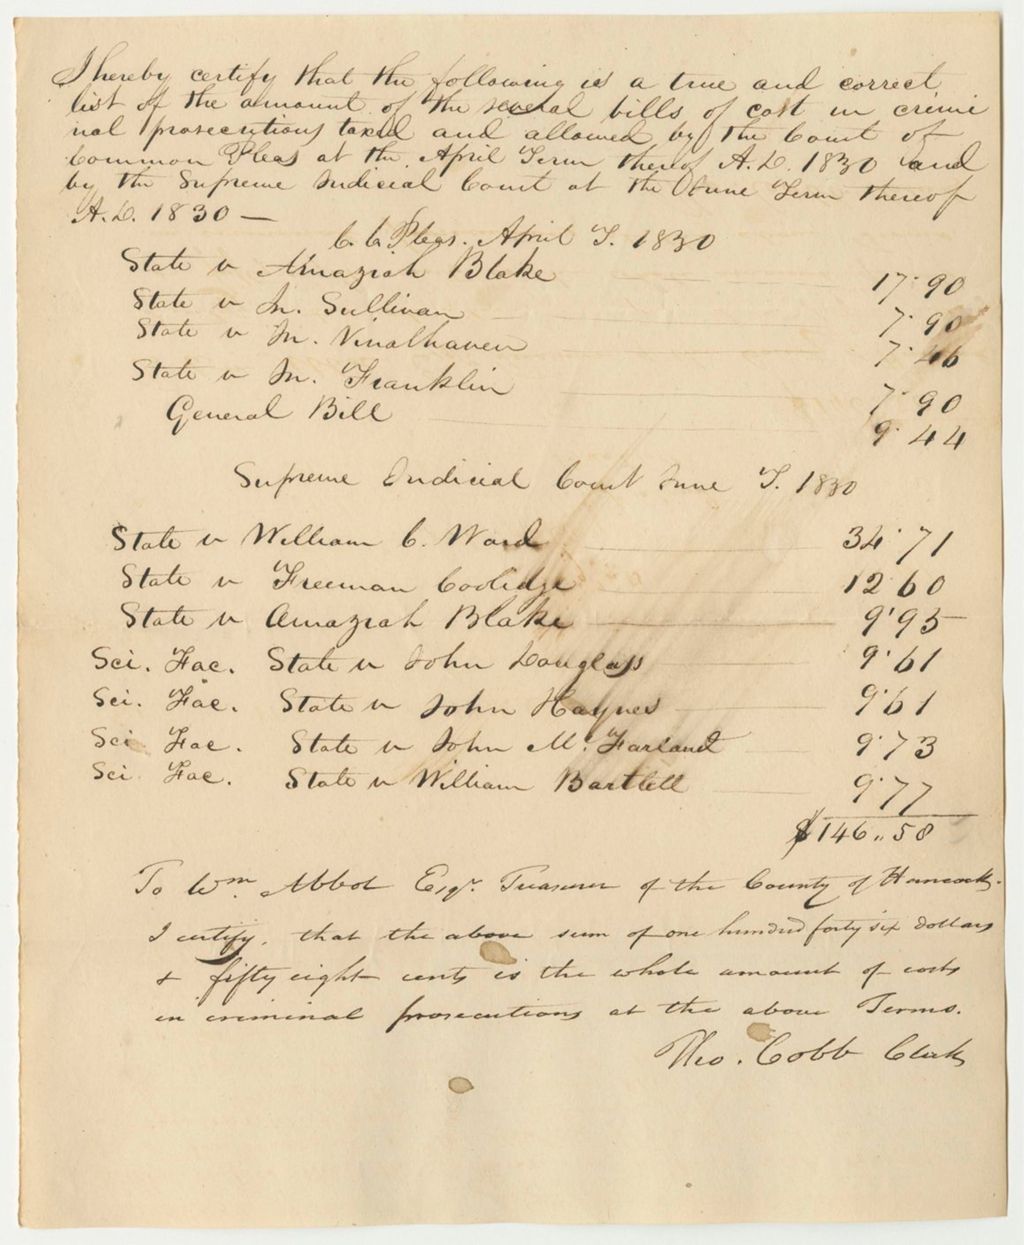 I hereby certify that the following is a true and correct
list of the amount of the several bills of cost in crimi
nal prosecutions taxed and allowed by the Court of
Common Pleas at the April Term thereof A.D. 1830 and
by the Supreme Judicial Court at the June Term thereof
A.D. 1830 —
C. C. Pleas. April T. 1830
State v Amaziah Blake 17.90
State v In. Sullivan 7.90
State v In. Vinalhaven 7.46
State v In. Franklin 7.90
General Bill 9.44
Supreme Judicial Court June T. 1830
State v William C. Ward 34.71
State v Freeman Coolidge 12.60
State v Amaziah Blake 9.95
Sci. Fac. State v John Douglass 9.61
Sci. Fac. State v John Haynes 9.61
Sci. Fac. State v John Mc Farland 9.73
Sci. Fac. State v William Bartlett 9.77
$146..58
To Wm. Abbot Esqr. Treasurer of the County of Hancock.
I certify, that the above sum of one hundred forty six dollars
& fifty eight cents is the whole amount of costs
in criminal prosecutions at the above Terms.
Tho. Cobb Clerk